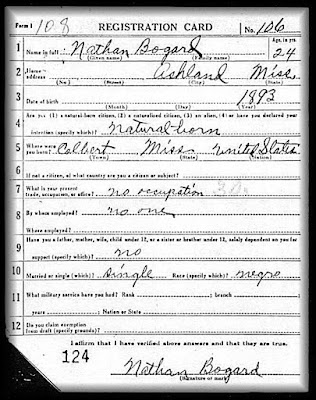 Form 1 108 REGISTRATION CARD No. 106
1 Name in full: Nathan Bogard Age, in yrs. 24
(Given name) (Family name)
2 Home address Ashland Miss.
(No.) (Street) (City) (State)
3 Date of birth 1893
(Month) (Day) (Year)
4 Are you (1) a natural-born citizen, (2) a naturalized citizen, (3) an alien, (4) or have you declared your
intention (specify which)? Natural-born
5 Where were you born? Colbert Miss United States
(Town) (State) (Nation)
6 If not a citizen, of what country are you a citizen or subject?
7 What is your present trade, occupation, or office? no occupation
8 By whom employed? no one
Where employed?
9 Have you a father, mother, wife, child under 12, or a sister or brother under 12, solely dependent on you for
support (specify which)? no
10 Married or single (which)? single Race (specify which)? negro
11 What military service have you had? Rank ; branch
years ; Nation or State
12 Do you claim exemption from draft (specify grounds)?
I affirm that I have verified above answers and that they are true.
124
Nathan Bogard
(Signature or mark)